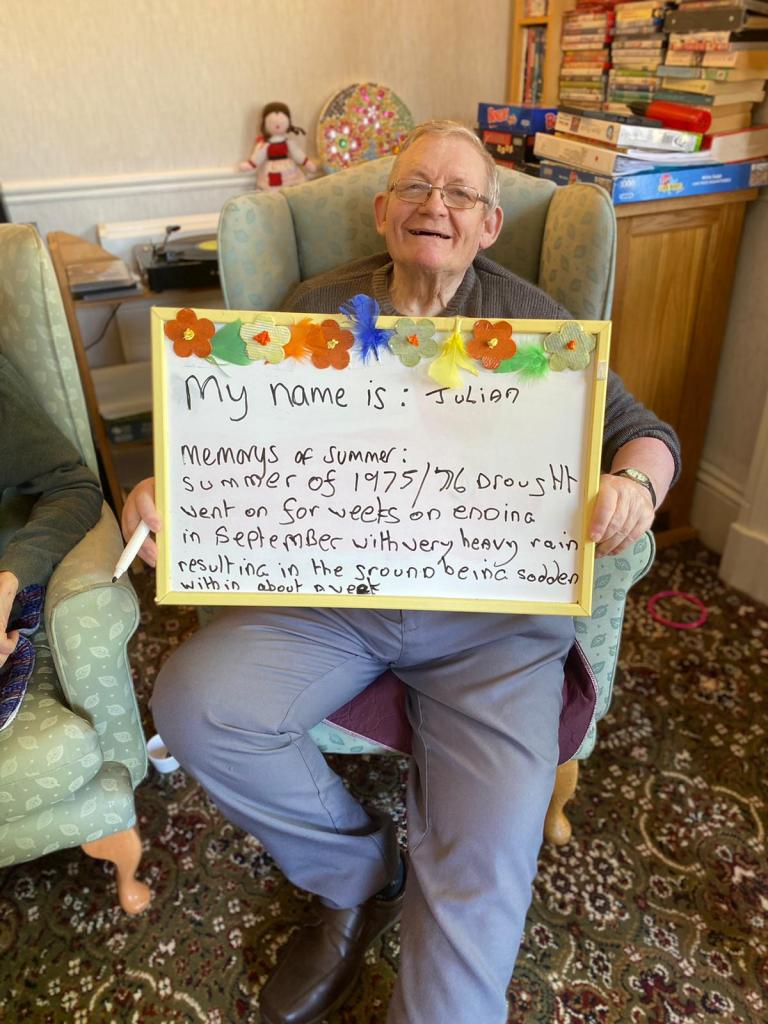 My name is: JULIAN
Memorys of summer:
summer of 1975/76 Drought
went on for weeks on ending
in September with very heavy rain
resulting in the ground being sodden
with in about a week